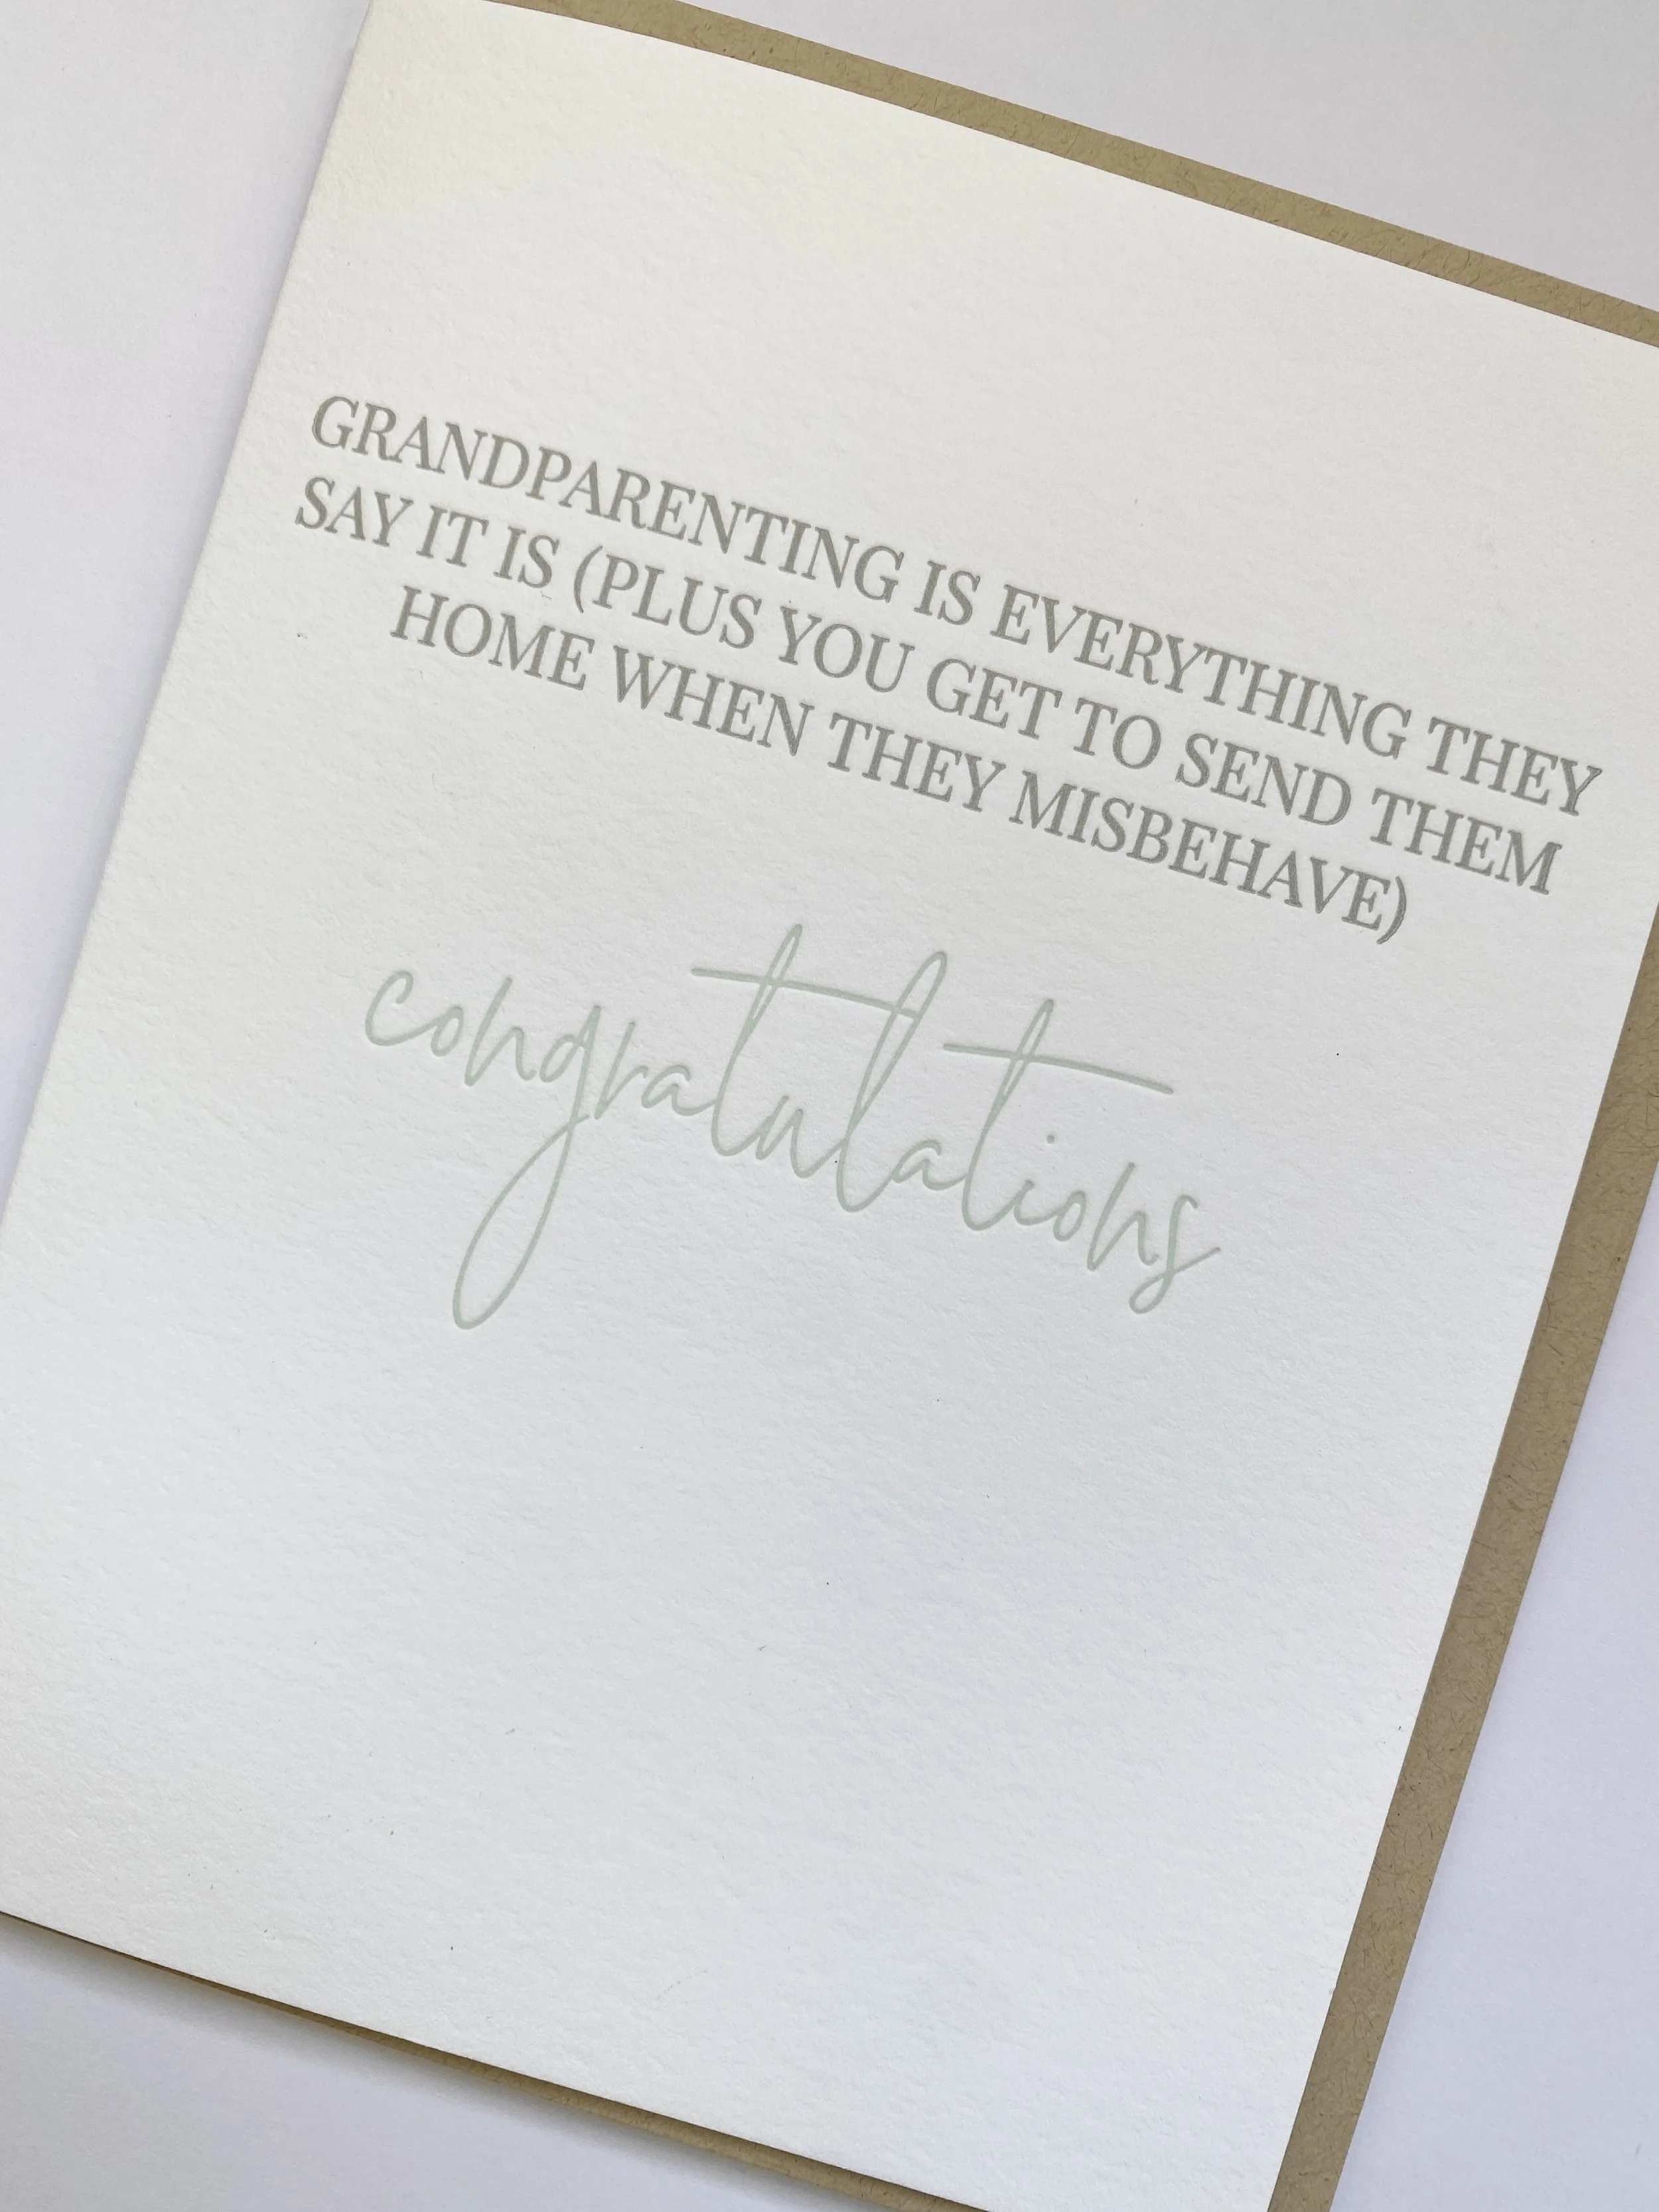 GRANDPARENTING IS EVERYTHING THEY
SAY IT IS (PLUS YOU GET TO SEND THEM
HOME WHEN THEY MISBEHAVE)
congratulations